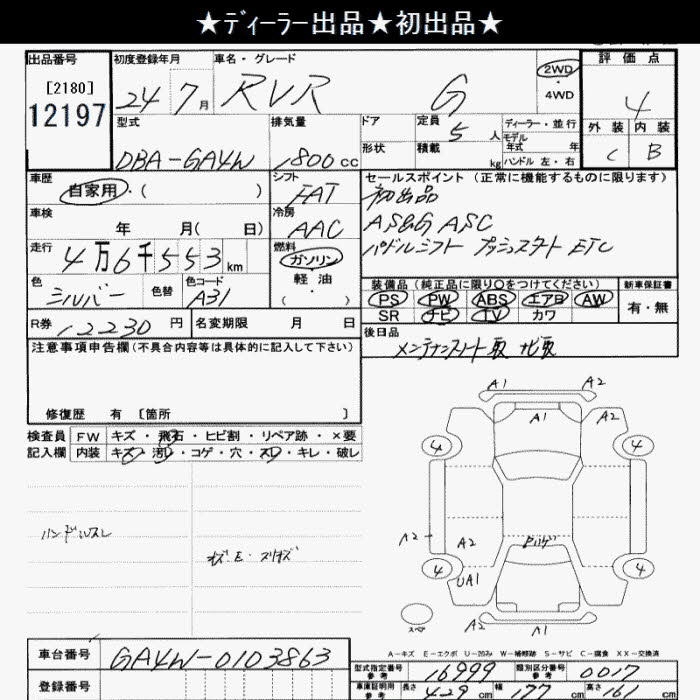 ★ディーラー出品★初出品★
出品番号 初度登録年月 車名・グレード 2WD 評価点
[2180] 24 7月 RVR G ・4WD 4
12197 型式 排気量 ドア 定員 5人 ディーラー・並行 外装 内装
モデル年式 年 C B
DBA-GA4W 1800cc 形状 積載 kg ハンドル 左・右
車歴 シフト セールスポイント (正常に機能するものに限ります)
自家用・( ) FAT 初出品
車検 冷房 AS&G ASC
年 月( 日) AAC パドルシフト プッシュスタート ETC
走行 燃料
4万6千553km ガソリン
色 色替 色コード 軽油 装備品 (純正品に限り○をつけてください) 新車保証書
シルバー A31 ・( ) PS PW ABS エアB AW 有・無
R券 12230円 名変期限 月 日 SR ナビ TV カワ
注意事項申告欄(不具合内容等は具体的に記入して下さい) 後日品
メンテナンスノート取 ナビ取
修復歴 有 [箇所 ]
検査員 FW キズ・飛石・ヒビ割・リペア跡・×要
記入欄 内装 キズ・汚・コゲ・穴・スレ・キレ・破レ
A1 A2
A1 A2
4 4
ハンドルスレ
A2 A2
4 UA1 4
A2 A1
A-キズ E-エクボ U-凹み W-補修跡 S-サビ C-腐食 XX-交換済
車台番号 GA4W-0103863 型式指定番号 参考 16999 類別区分番号 参考 0017
登録番号 車庫証明用 参考 長さ 429cm 幅 177cm 高さ 161cm